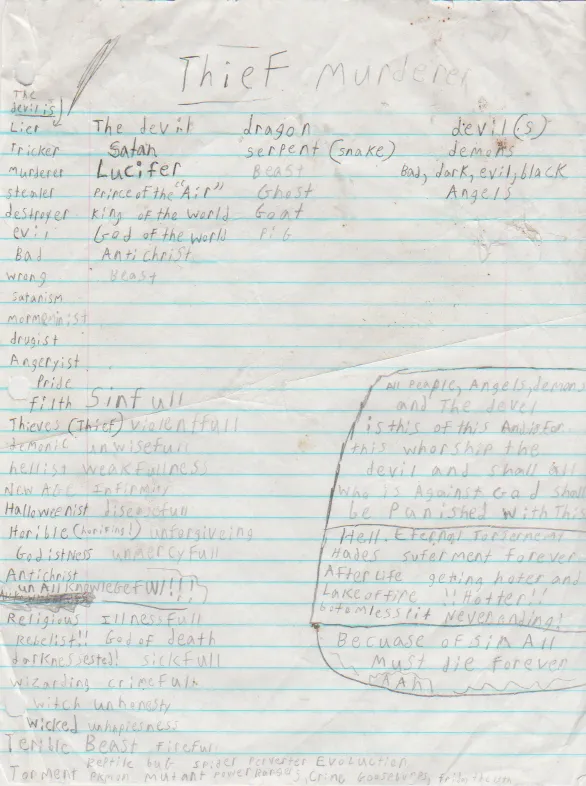 Thief Murderer
The
devil is
Lier The devil dragon devil(s)
Tricker Satan serpent (snake) demons
Murderer Lucifer Beast Bad, dark, evil, black
stealer Prince of the "Air" Ghost Angels
destroyer King of the World Goat
evil God of the World Pig
Bad Antichrist
wrong Beast
Satanism
mormeninist
drugist
Angeryist
Pride
filth Sinfull
Thieves (Thief) violentfull
demonic unwisefull
hellist weakfullness
New AGE Infirmity
Halloweenist diseasefull
Horible (horifing!) unforgiveing
Godistness unmercyfull
Antichrist
un All Knowlegefull!!!
Religious Illnessfull
Rebelist!! God of death
darknessested! sickfull
wizarding crimefull
witch unhonesty
Wicked unhapiesness
Terrible Beast Firefull
Reptile bug spider Perverter Evolution
Torment Demon Mutant Power Rangers, Crime Goosebumps,
All People, Angels, demons
and The devel
is this of this And is For
this whorship the
devil and shall all
who is Against God shall
be Panished with This
Hell. Eternal Torsement
Hades suferment forever
After Life geting hoter and
Lake of fire !! Hotter!!
botomless Pit Neveranding!
Becuase of sin All
Must die forever
AAAh